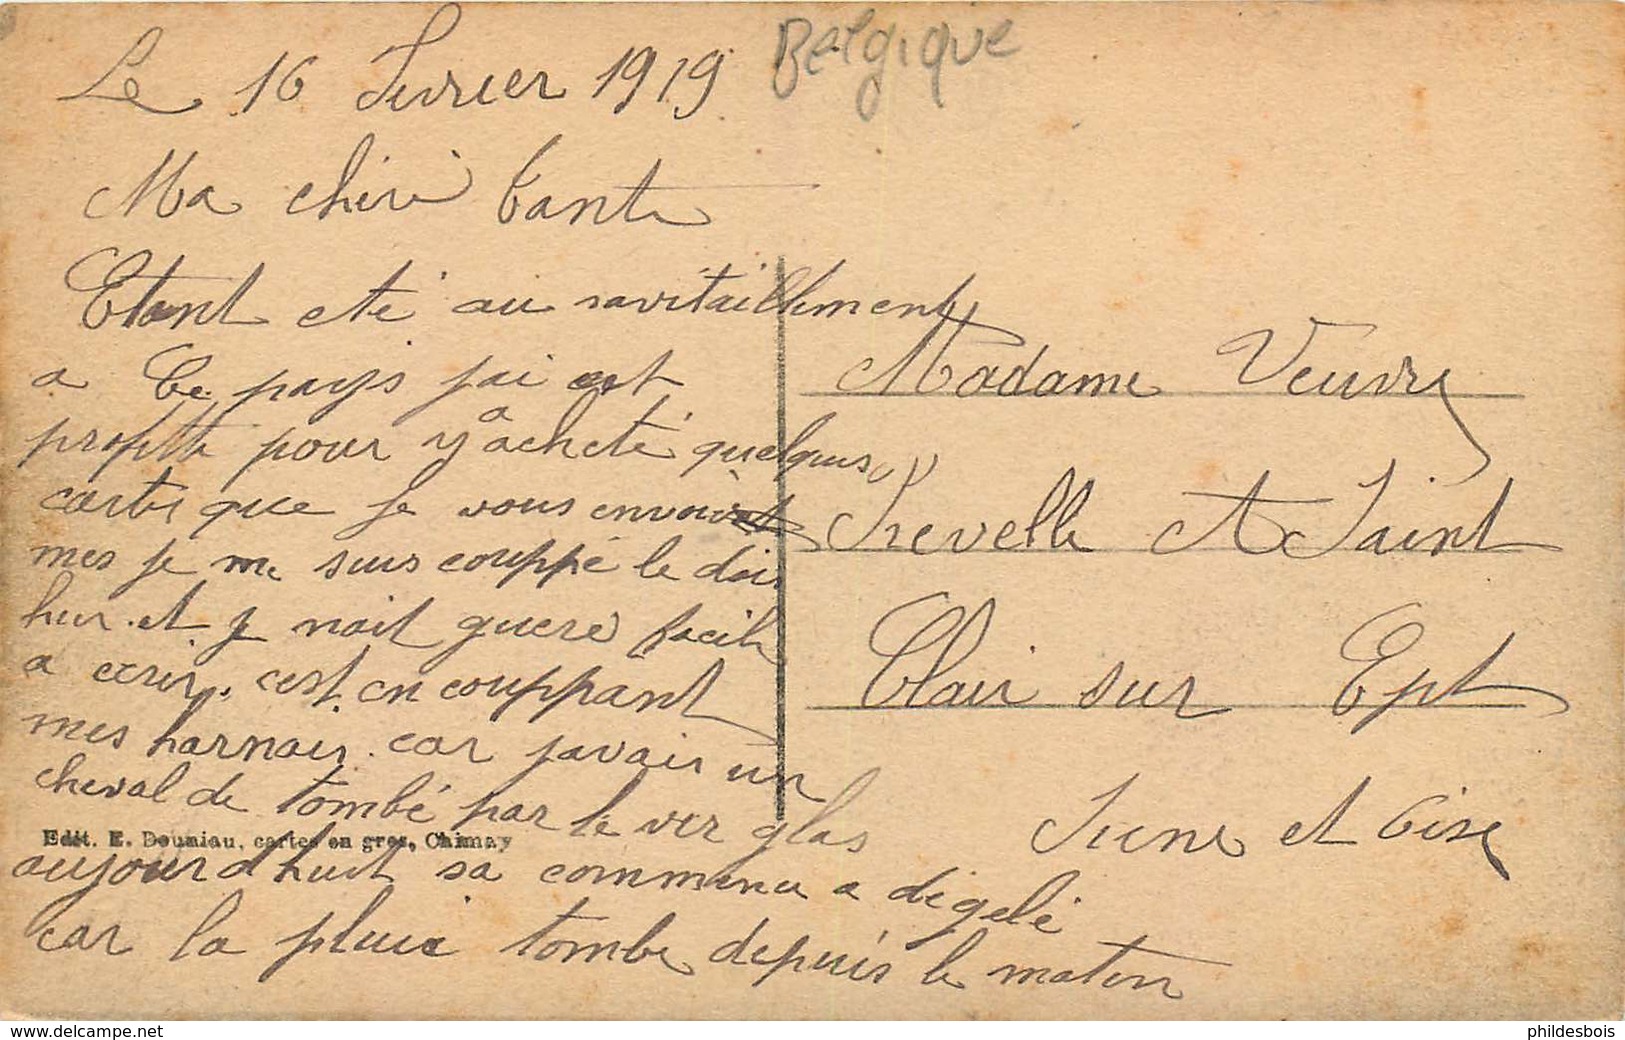 Belgique
Le 16 Fevrier 1919
Ma chère tante
Etant eté au ravitaillement
a Ce pays j'ai est
profité pour y a acheté quelques
cartes que je vous envoie
mes je me suis couppé le dois
hier et je nait guere facile
a ecrire. c'est en couppant
mes harnais. car j'avais un
cheval de tombé par le ver glas
aujourd huit sa commence a dégelé
car la pluie tombe depuis le maten
Madame Veuvre
Frevelle A Saint
Clair sur Ept
Seine et Oise
Edit. E. Douniau, cartes en gros, Chimay
www.delcampe.net
phildesbois